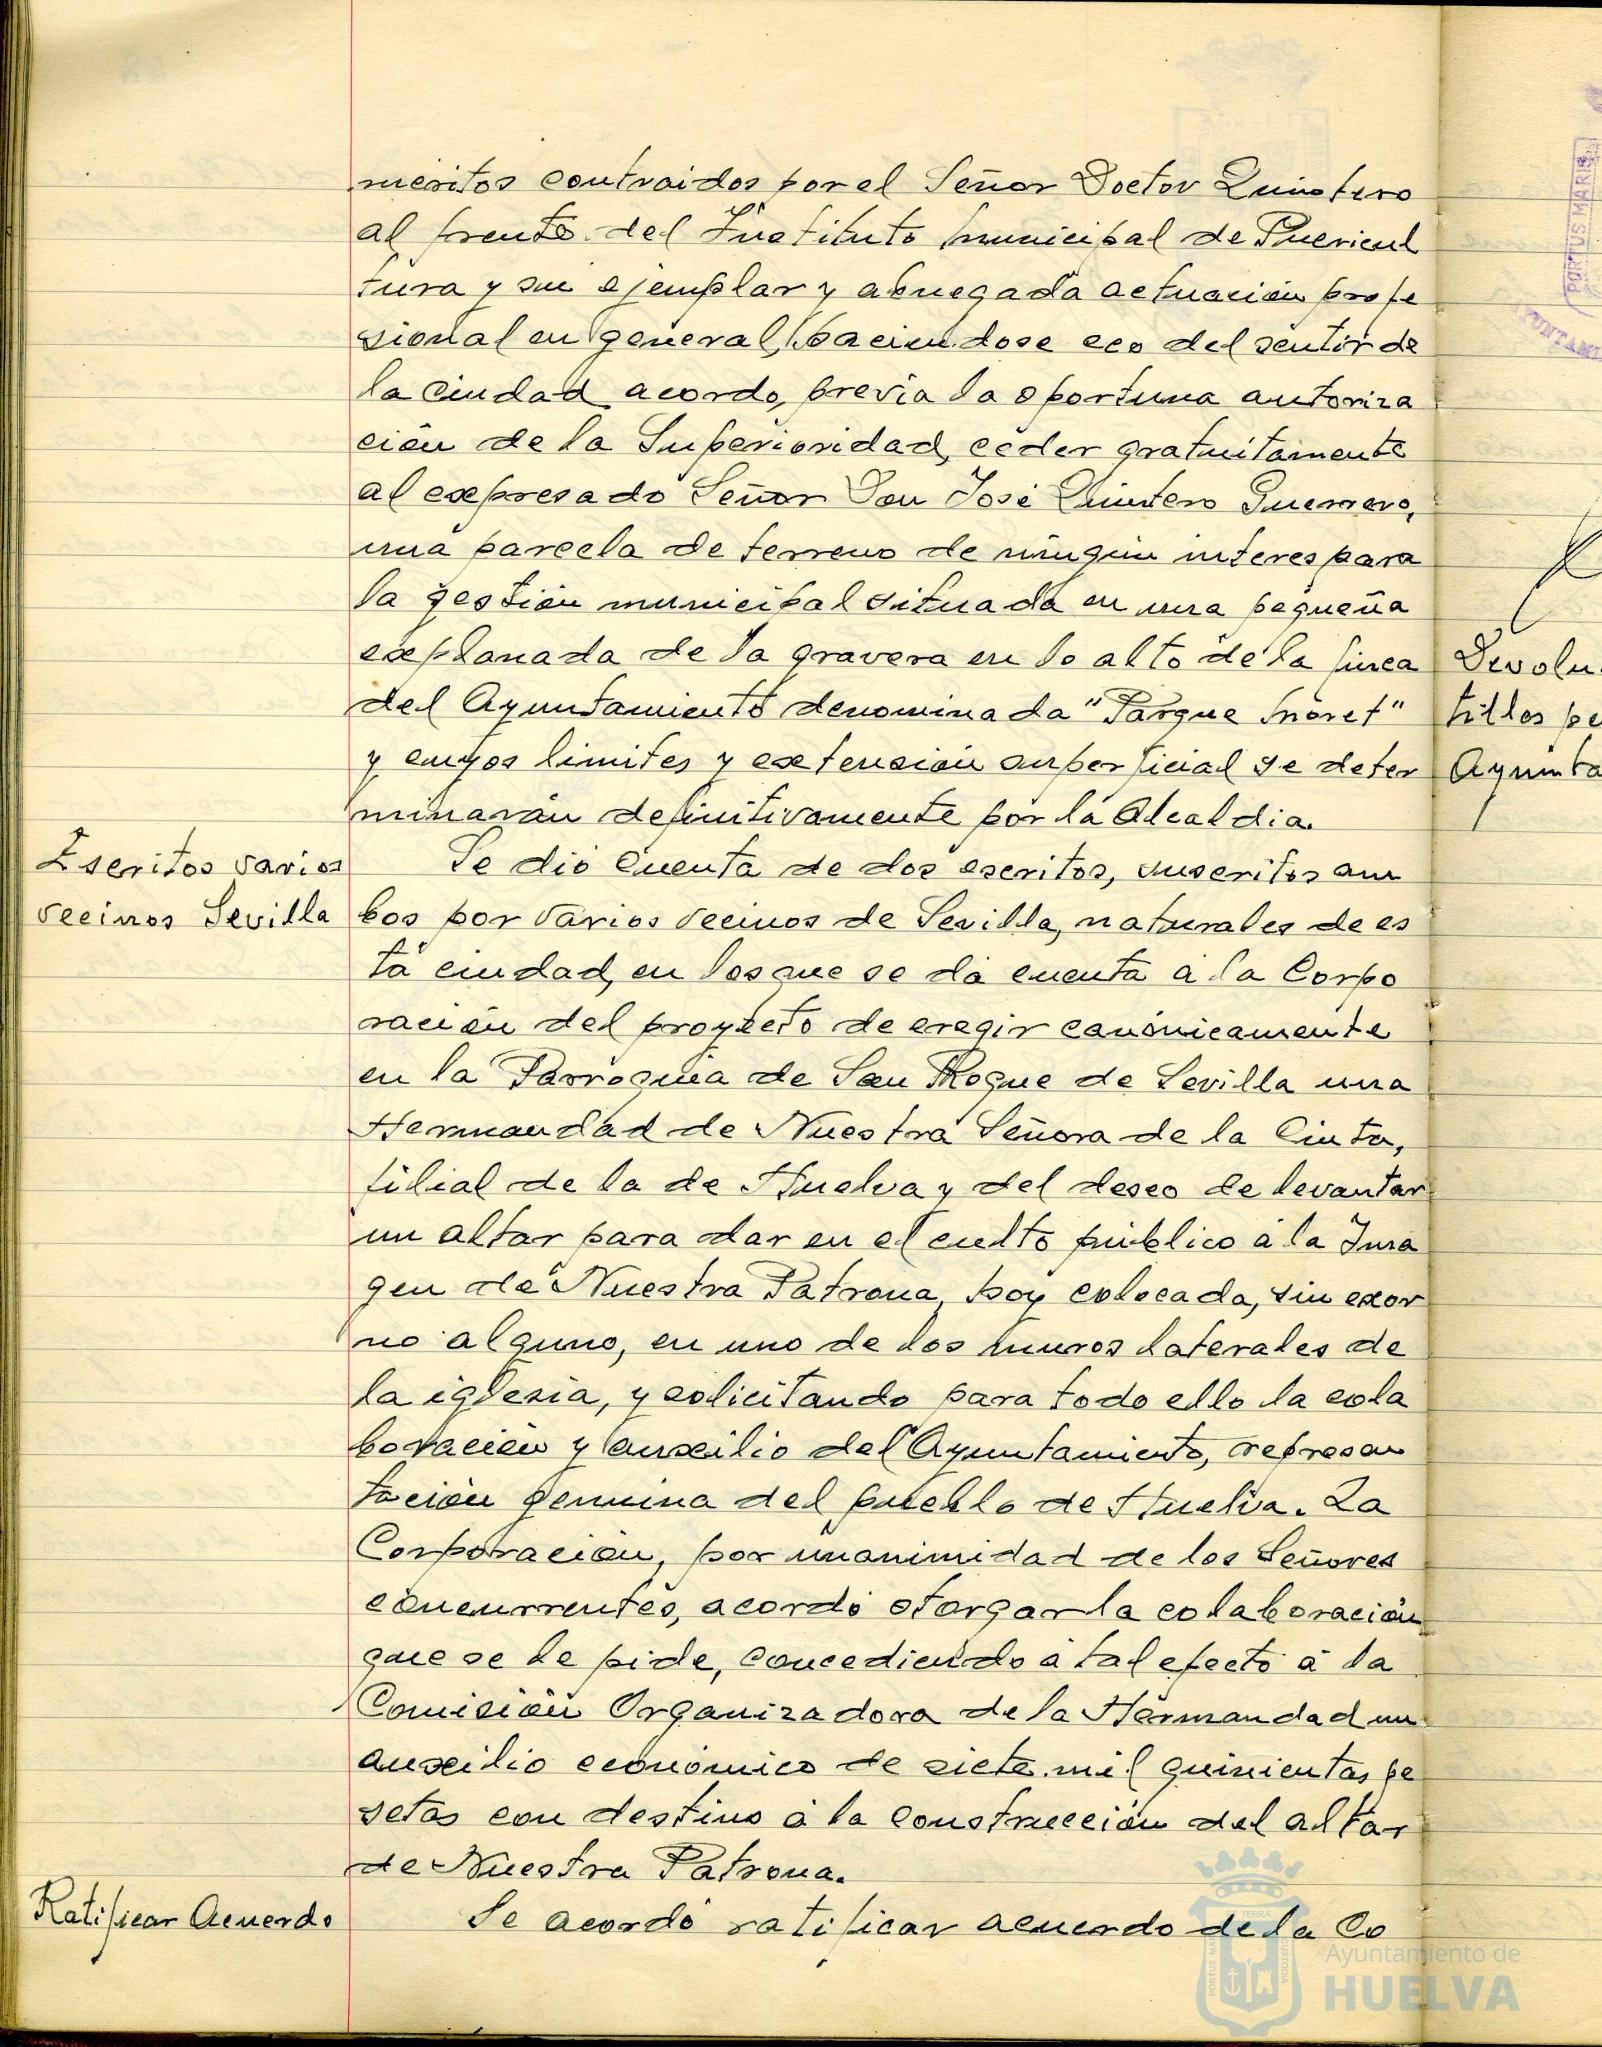 meritos contraidos por el Señor Doctor Quintero
al frente del Instituto municipal de Puericul
tura y su ejemplar y abnegada actuación profe
sional en general, haciendose eco del sentir de
la ciudad acordo, previa la oportuna autoriza
ción de la Superioridad, ceder gratuitamente
al expresado Señor Don José Quintero Guerrero,
una parcela de terreno de ningún interes para
la gestión municipal situada en una pequeña
explanada de la gravera en lo alto de la finca
del Ayuntamiento denominada "Parque Moret"
y cuyos limites y extensión superficial se deter
minarán definitivamente por la Alcaldia.
Escritos varios
vecinos Sevilla
Se dió cuenta de dos escritos, suscritos am
bos por varios vecinos de Sevilla, naturales de es
ta ciudad, en los que se dá cuenta á la Corpo
ración del proyecto de eregir canónicamente
en la Parroquia de San Roque de Sevilla una
Hermandad de Nuestra Señora de la Cinta,
filial de la de Huelva y del deseo de levantar
un altar para dar en el culto público á la Ima
gen de Nuestra Patrona, hoy colocada, sin exor
no alguno, en uno de los muros laterales de
la iglesia, y solicitando para todo ello la cola
boración y auxilio del Ayuntamiento, represen
tación genuina del pueblo de Huelva. La
Corporación, por unanimidad de los Señores
concurrentes, acordó otorgar la colaboración
que se le pide, concediendo á tal efecto á la
Comisión Organizadora de la Hermandad un
auxilio económico de siete mil quinientas pe
setas con destino á la construcción del altar
de Nuestra Patrona.
Ratificar Acuerdo
Se acordó ratificar acuerdo de la Co
Devolu
tillos pe
Ayunta
PORTUS MARIS
Ayuntamiento de
HUELVA